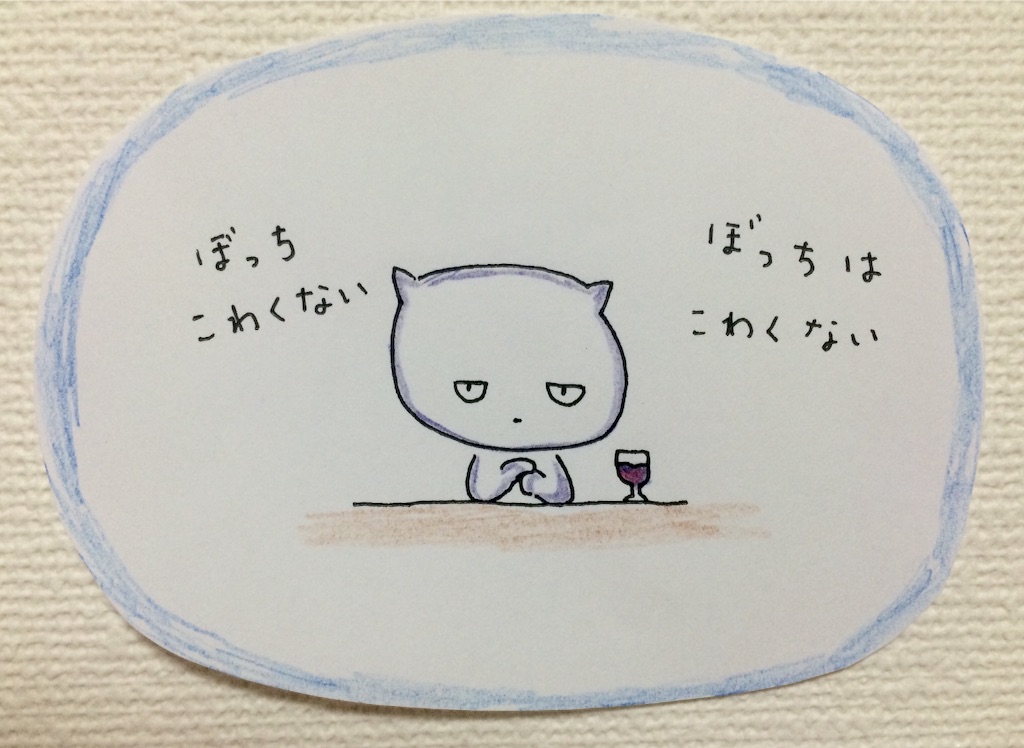 ぼっち
こわくない
ぼっちは
こわくない